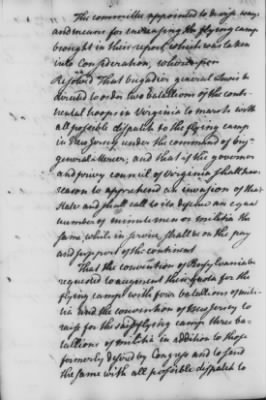 The committee appointed to devise ways
and means for increasing the flying camp
brought in their report, which was taken
into consideration, whereupon
Resolved That brigadier general Lewis be
directed to order two batallions of the conti-
nental troops in Virginia to march with
all possible dispatch to the flying camp
in New Jersey under the command of brig
general Mercer; and that if the governor
and privy council of Virginia shall have
reason to apprehend an invasion of that
State and shall call to its defence an equal
number of minutemen or militia the
same while in service, shall be on the pay
and support of the continent
That the convention of Pensylvania be
requested to augment their quota for the
flying camp with four batalions of mili-
tia and the convention of New Jersey to
raise for the sd flying camp three ba-
tallions of militia in addition to those
formerly desired by Congress and to send
the same with all possible dispatch to